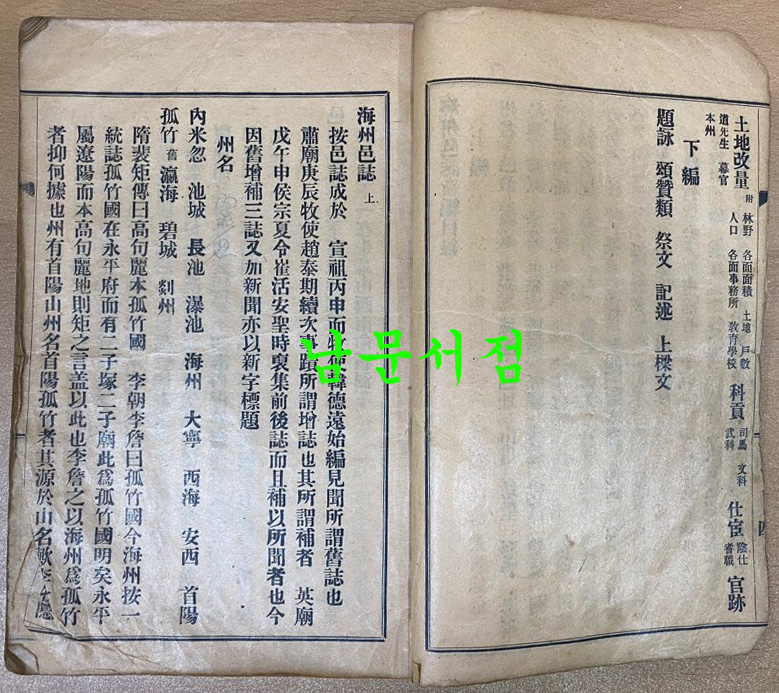 土地改量 附 林野 各面面積 土地 戶數
人口 各面事務所 敎育學校
科貢 司馬 文科
武科
仕宦 蔭仕
耆職
官跡
道先生 幕官
本州
下編
題詠 頌贊類 祭文 記述 上樑文
四
海州邑誌 上
按邑誌成於 宣祖丙申而牧使韓德遠始編見聞所謂舊誌也
肅廟庚辰牧使趙泰期續次事蹟所謂增誌也其所謂補者 英廟
戊午申侯宗夏令崔活安聖時裒集前後誌而且補以所聞者也今
因舊增補三誌又加新聞亦以新字標題
州名
內米忽 池城 長池 瀑池 海州 大寧 西海 安西 首陽
孤竹 舊 瀛海 碧城 㓨州
隋裴矩傳曰高句麗本孤竹國 李朝李詹曰孤竹國今海州按一
統誌孤竹國在永平府而有二子塚二子廟此爲孤竹國明矣永平
屬遼陽而本高句麗地則矩之言盖以此也李詹之以海州爲孤竹
者抑何據也州有首陽山州名首陽孤竹者其源於山名歟
남문서점